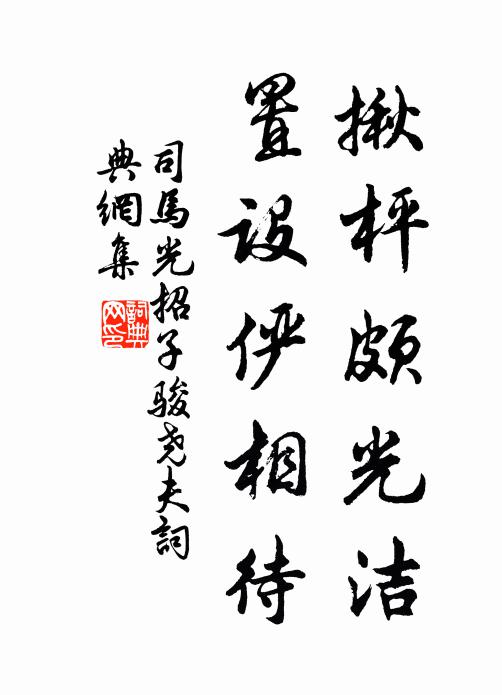 揪枰頗光洁
置設俨相待
司馬光招子駿尧夫詞
典網集
詞典网印